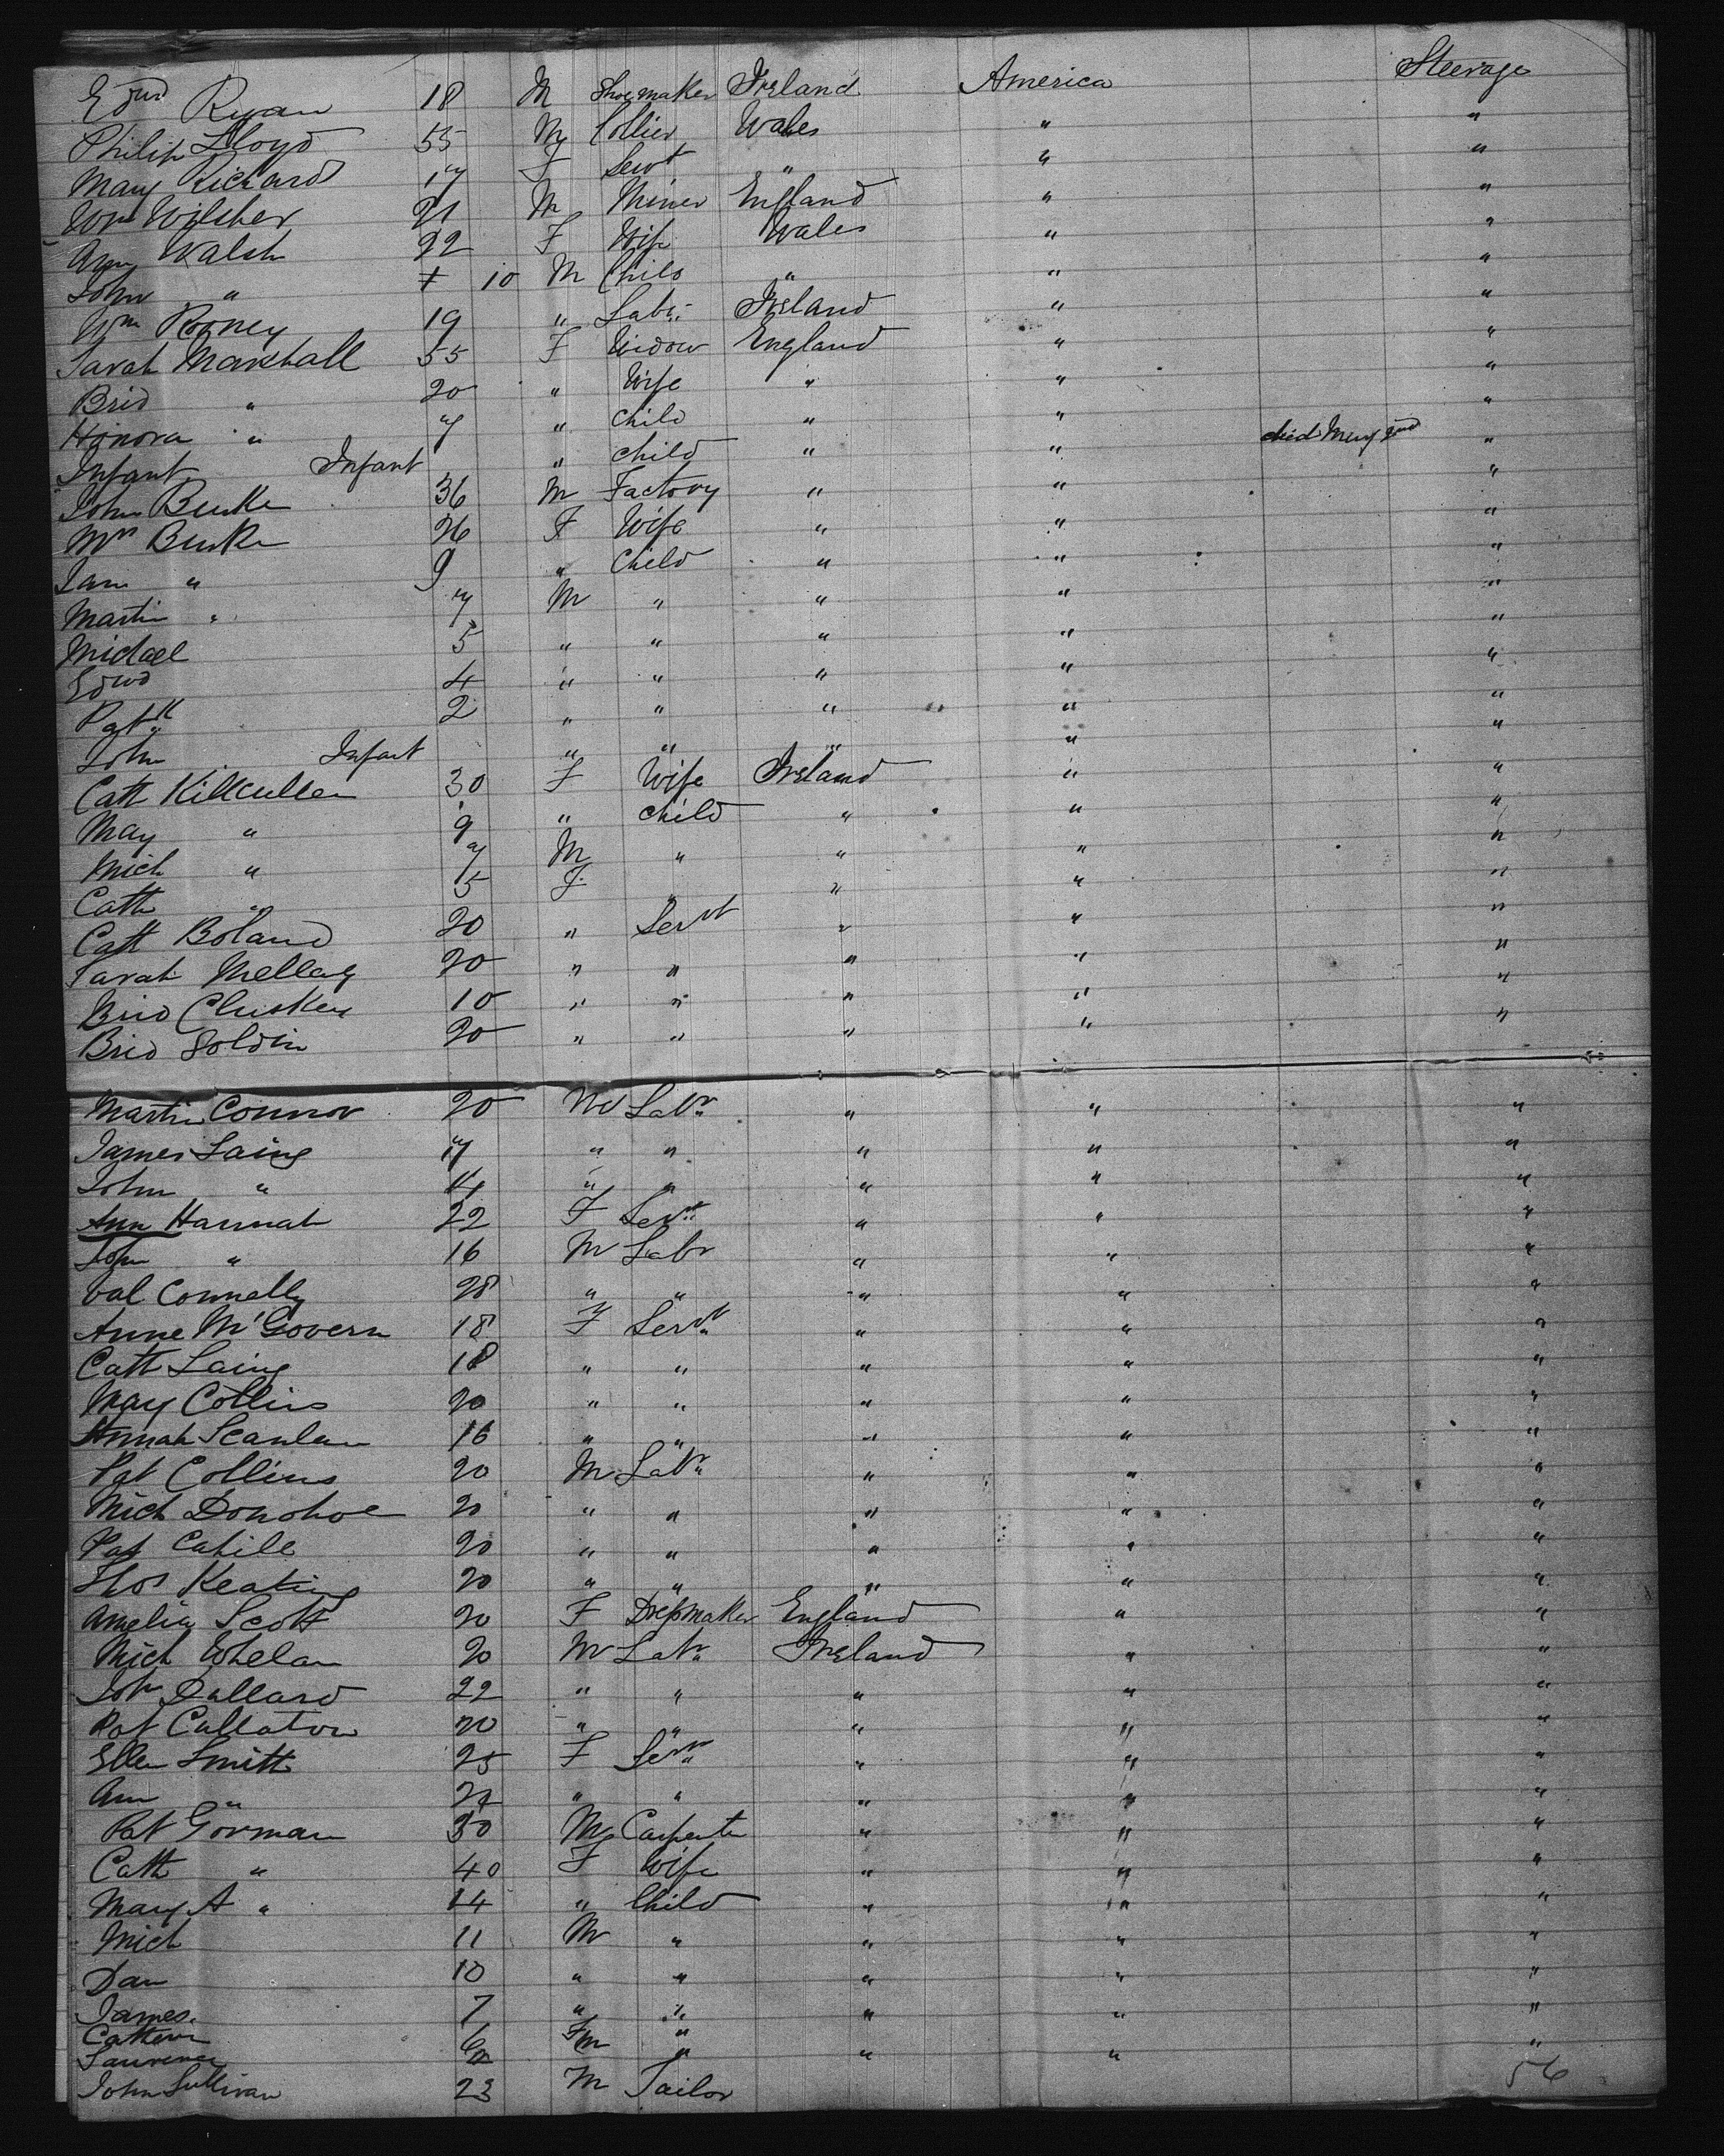 Edwd Ryan 18 M Shoemaker Ireland America Steerage
Philip Lloyd 55 M Collier Wales " "
Mary Richard 17 F Sevt " " "
Wm Wilsher 21 M Miner England " "
Ann Walsh 22 F Wife Wales " "
John " 10 M Child " " "
Wm Rooney 19 " Labr Ireland " "
Sarah Marshall 55 F Widow England " "
Brid " 20 " Wife " " "
Honora " 7 " Child " " "
Infant Infant " child " " died May 2nd "
John Burke 36 M Factory " " "
Mrs Burke 26 F Wife " " "
Jane " 9 " Child " " "
Martin " 7 M " " " "
Michael 5 " " " " "
Edwd 4 " " " " "
Patk 2 " " " " "
John Infant " " " " "
Cath Killcullen 30 F Wife Ireland " "
May " 9 " child " " "
Mich " 7 M " " " "
Cath " 5 F " " " "
Cath Boland 20 " Servt " " "
Sarah Mellay 20 " " " " "
Brid Cluskey 10 " " " " "
Brid Goldin 20 " " " " "
Martin Connor 20 M Labr " " "
James Laing 7 " " " " "
John " 4 " " " " "
Ann Hannah 22 F Servt " " "
John " 16 M Labr " " "
Val Connelly 28 " " " " "
Anne McGovern 18 F Servt " " "
Cath Laing 18 " " " " "
May Collins 20 " " " " "
Hannah Scanlan 16 " " " " "
Pat Collins 20 M Labr " " "
Mich Donohoe 20 " " " " "
Pat Cahill 20 " " " " "
Thos Keating 20 " " " " "
Amelia Scott 20 F Dressmaker England " "
Mich Whelan 20 M Labr Ireland " "
Joh Dallard 22 " " " " "
Pat Callaton 20 " " " " "
Ellen Smith 25 F Servt " " "
Ann " 22 " " " " "
Pat Gorman 50 M Carpenter " " "
Cath " 40 F Wife " " "
Mary A " 14 " Child " " "
Mich 11 M " " " "
Dan 10 " " " " "
James 7 " " " " "
Cathern 6 F "
Laurence 2 m " " " "
John Sullivan 23 M Tailor
56